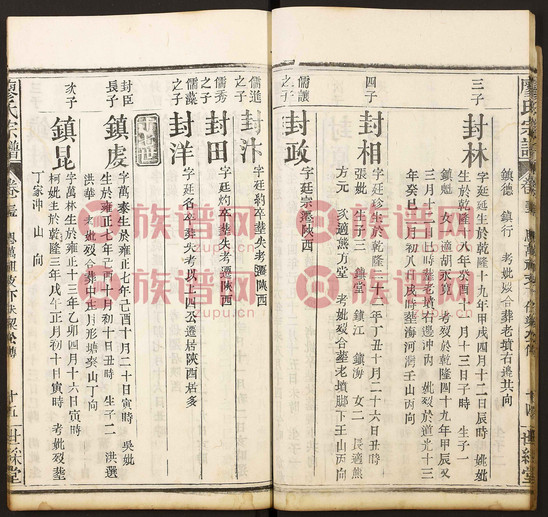 鎮德 鎮行 考妣
合葬老墳右
共向
三子
封林
字廷
生於乾隆十九年甲戌四月十二日辰時 姚妣
生於乾隆
八年癸酉十一月十三日子時 生子一
鎮魁 女一 適胡永寬 考歿於乾隆四十九年甲辰
三月十
時葬老墳右邊沖內 妣歿於道光十三
年癸巳
月初八日戌時葬海河
壬山丙向
四子
封相
字廷珍生於乾隆二十二年丁丑十月二十六日丑時
張妣 生子三 鎮
鎮江 鎮海 女二 長適熊
方元 次適熊方堂 考妣歿合葬老墳腳下壬山丙向
儒讓之子
封政
字廷宗遷陝西
儒進之子
封汴
字廷
卒葬失考遷陝西
儒秀之子
封田
字廷灼卒葬失考
儒藻之子
封洋
字廷名卒葬失考以上四公遷居陝西居多
封臣長子
鎮虔
字萬泰生於雍正七年己酉十月二十日寅時 吳妣
生於雍正七年己酉十一月初十日丑時 生子二 洪選
洪華 考妣歿合葬中正月形塘
癸山丁向
次子
鎮昆
字萬林生於乾隆十三年乙卯四月十六日寅時
柯妣生於乾隆三年戊午正月初十日寅時 考妣歿葬
丁家沖 山 向
廖氏宗譜
卷
十五
世綵堂
廖氏宗譜
卷
世綵堂
族譜网
zupu.cn